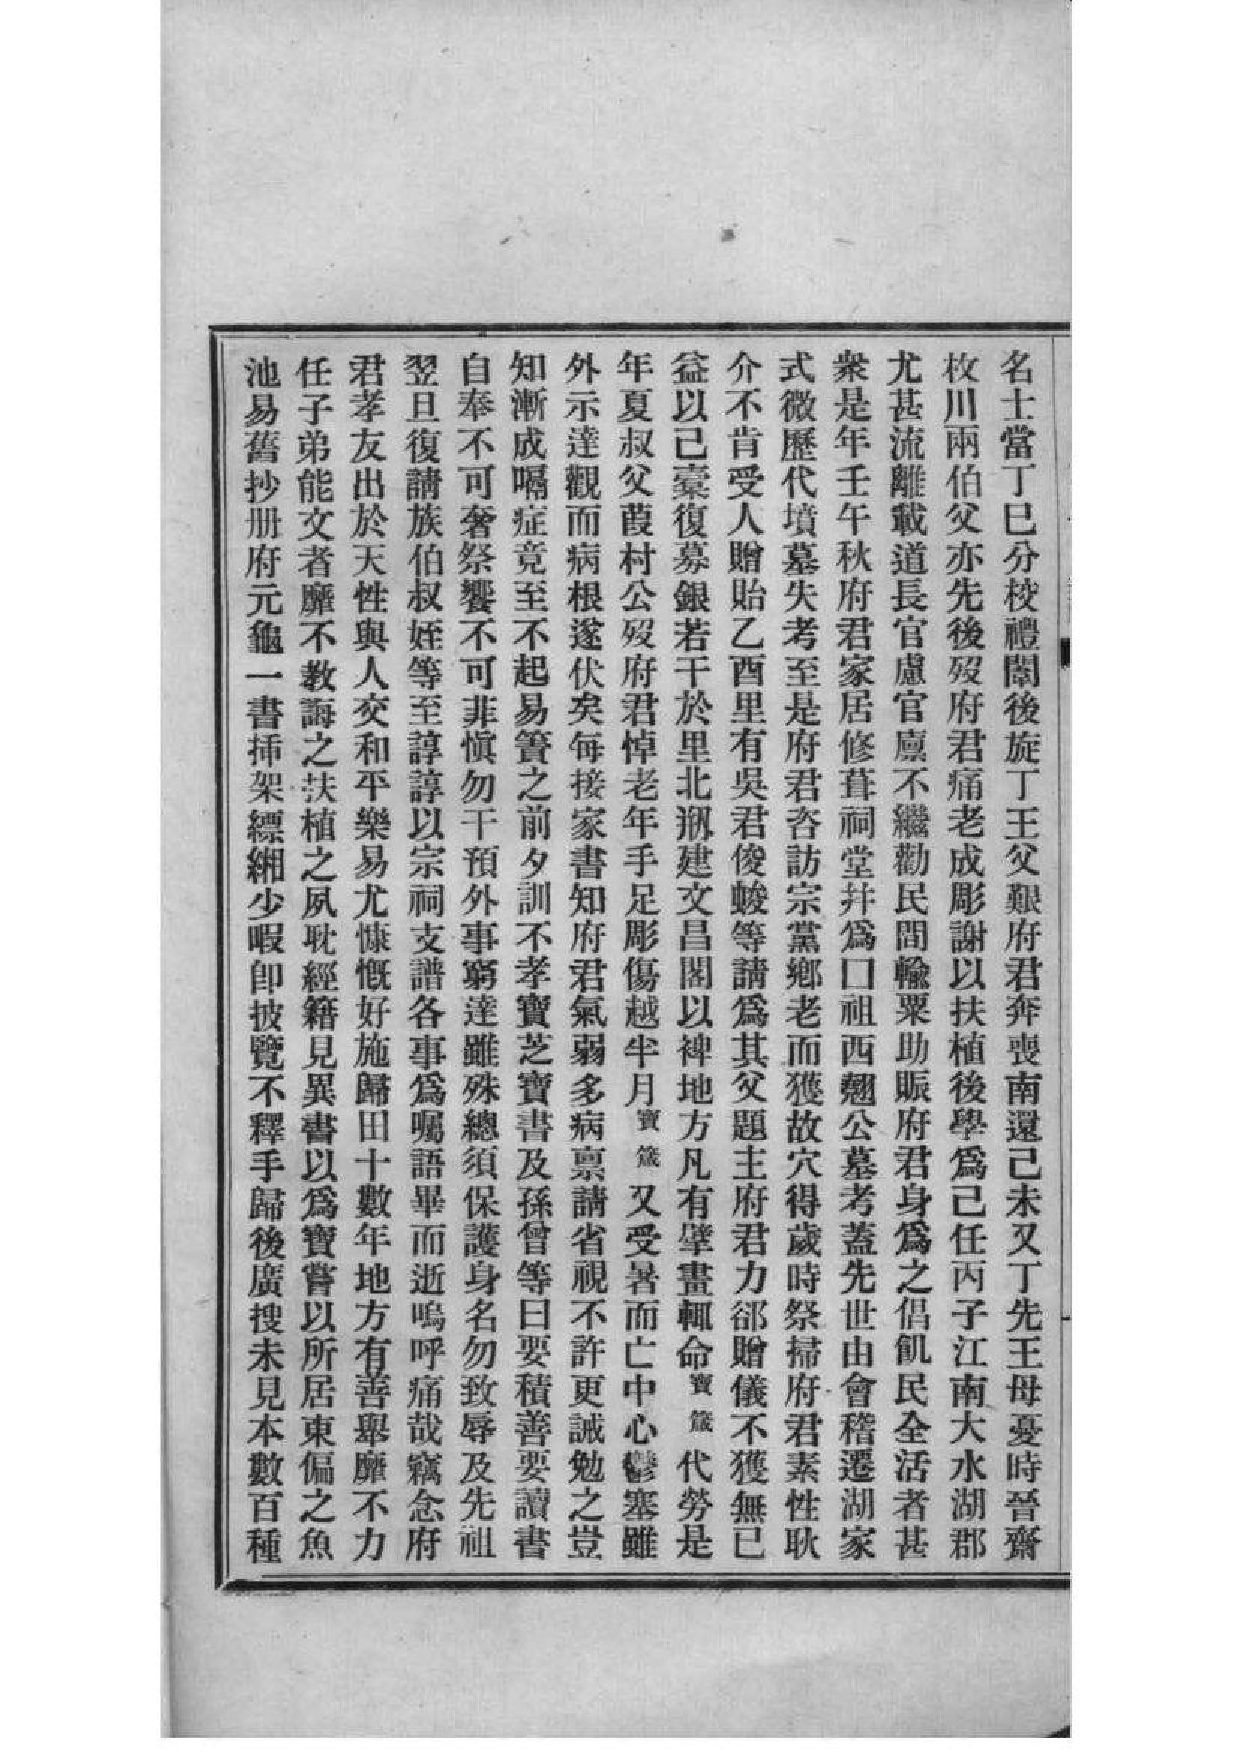 名士當丁巳分校禮闈後旋丁王父艱府君奔喪南還己未又丁先王母憂時晉齋
枚川兩伯父亦先後歿府君痛老成彫謝以扶植後學爲己任丙子江南大水湖郡
尤甚流離載道長官慮官廩不繼勸民間輸粟助賑府君身爲之倡飢民全活者甚
衆是年壬午秋府君家居修葺祠堂并爲囗祖西翹公墓考蓋先世由會稽遷湖家
式微歷代墳墓失考至是府君咨訪宗黨鄉老而獲故穴得歲時祭掃府君素性耿
介不肯受人贈貽乙酉里有吳君俊蛟等請爲其父題主府君力郤贈儀不獲無已
益以己橐復募銀若干於里北剏建文昌閣以裨地方凡有擘畫輒命寶箴代勞是
年夏叔父葭村公歿府君悼老年手足彫傷越半月寶箴又受暑而亡中心鬱塞雖
外示達觀而病根遂伏矣每接家書知府君氣弱多病禀請省視不許更誡勉之豈
知漸成嗝症竟至不起易簀之前夕訓不孝寶芝寶書及孫曾等曰要積善要讀書
自奉不可奢祭饗不可非愼勿干預外事窮達雖殊總須保護身名勿致辱及先祖
翌旦復請族伯叔姪等至諄諄以宗祠支譜各事爲囑語畢而逝嗚呼痛哉竊念府
君孝友出於天性與人交和平樂易尤慷慨好施歸田十數年地方有善舉靡不力
任子弟能文者靡不教誨之扶植之夙耽經籍見異書以爲寶嘗以所居東偏之魚
池易舊抄册府元龜一書揷架縹緗少暇卽披覽不釋手歸後廣搜未見本數百種